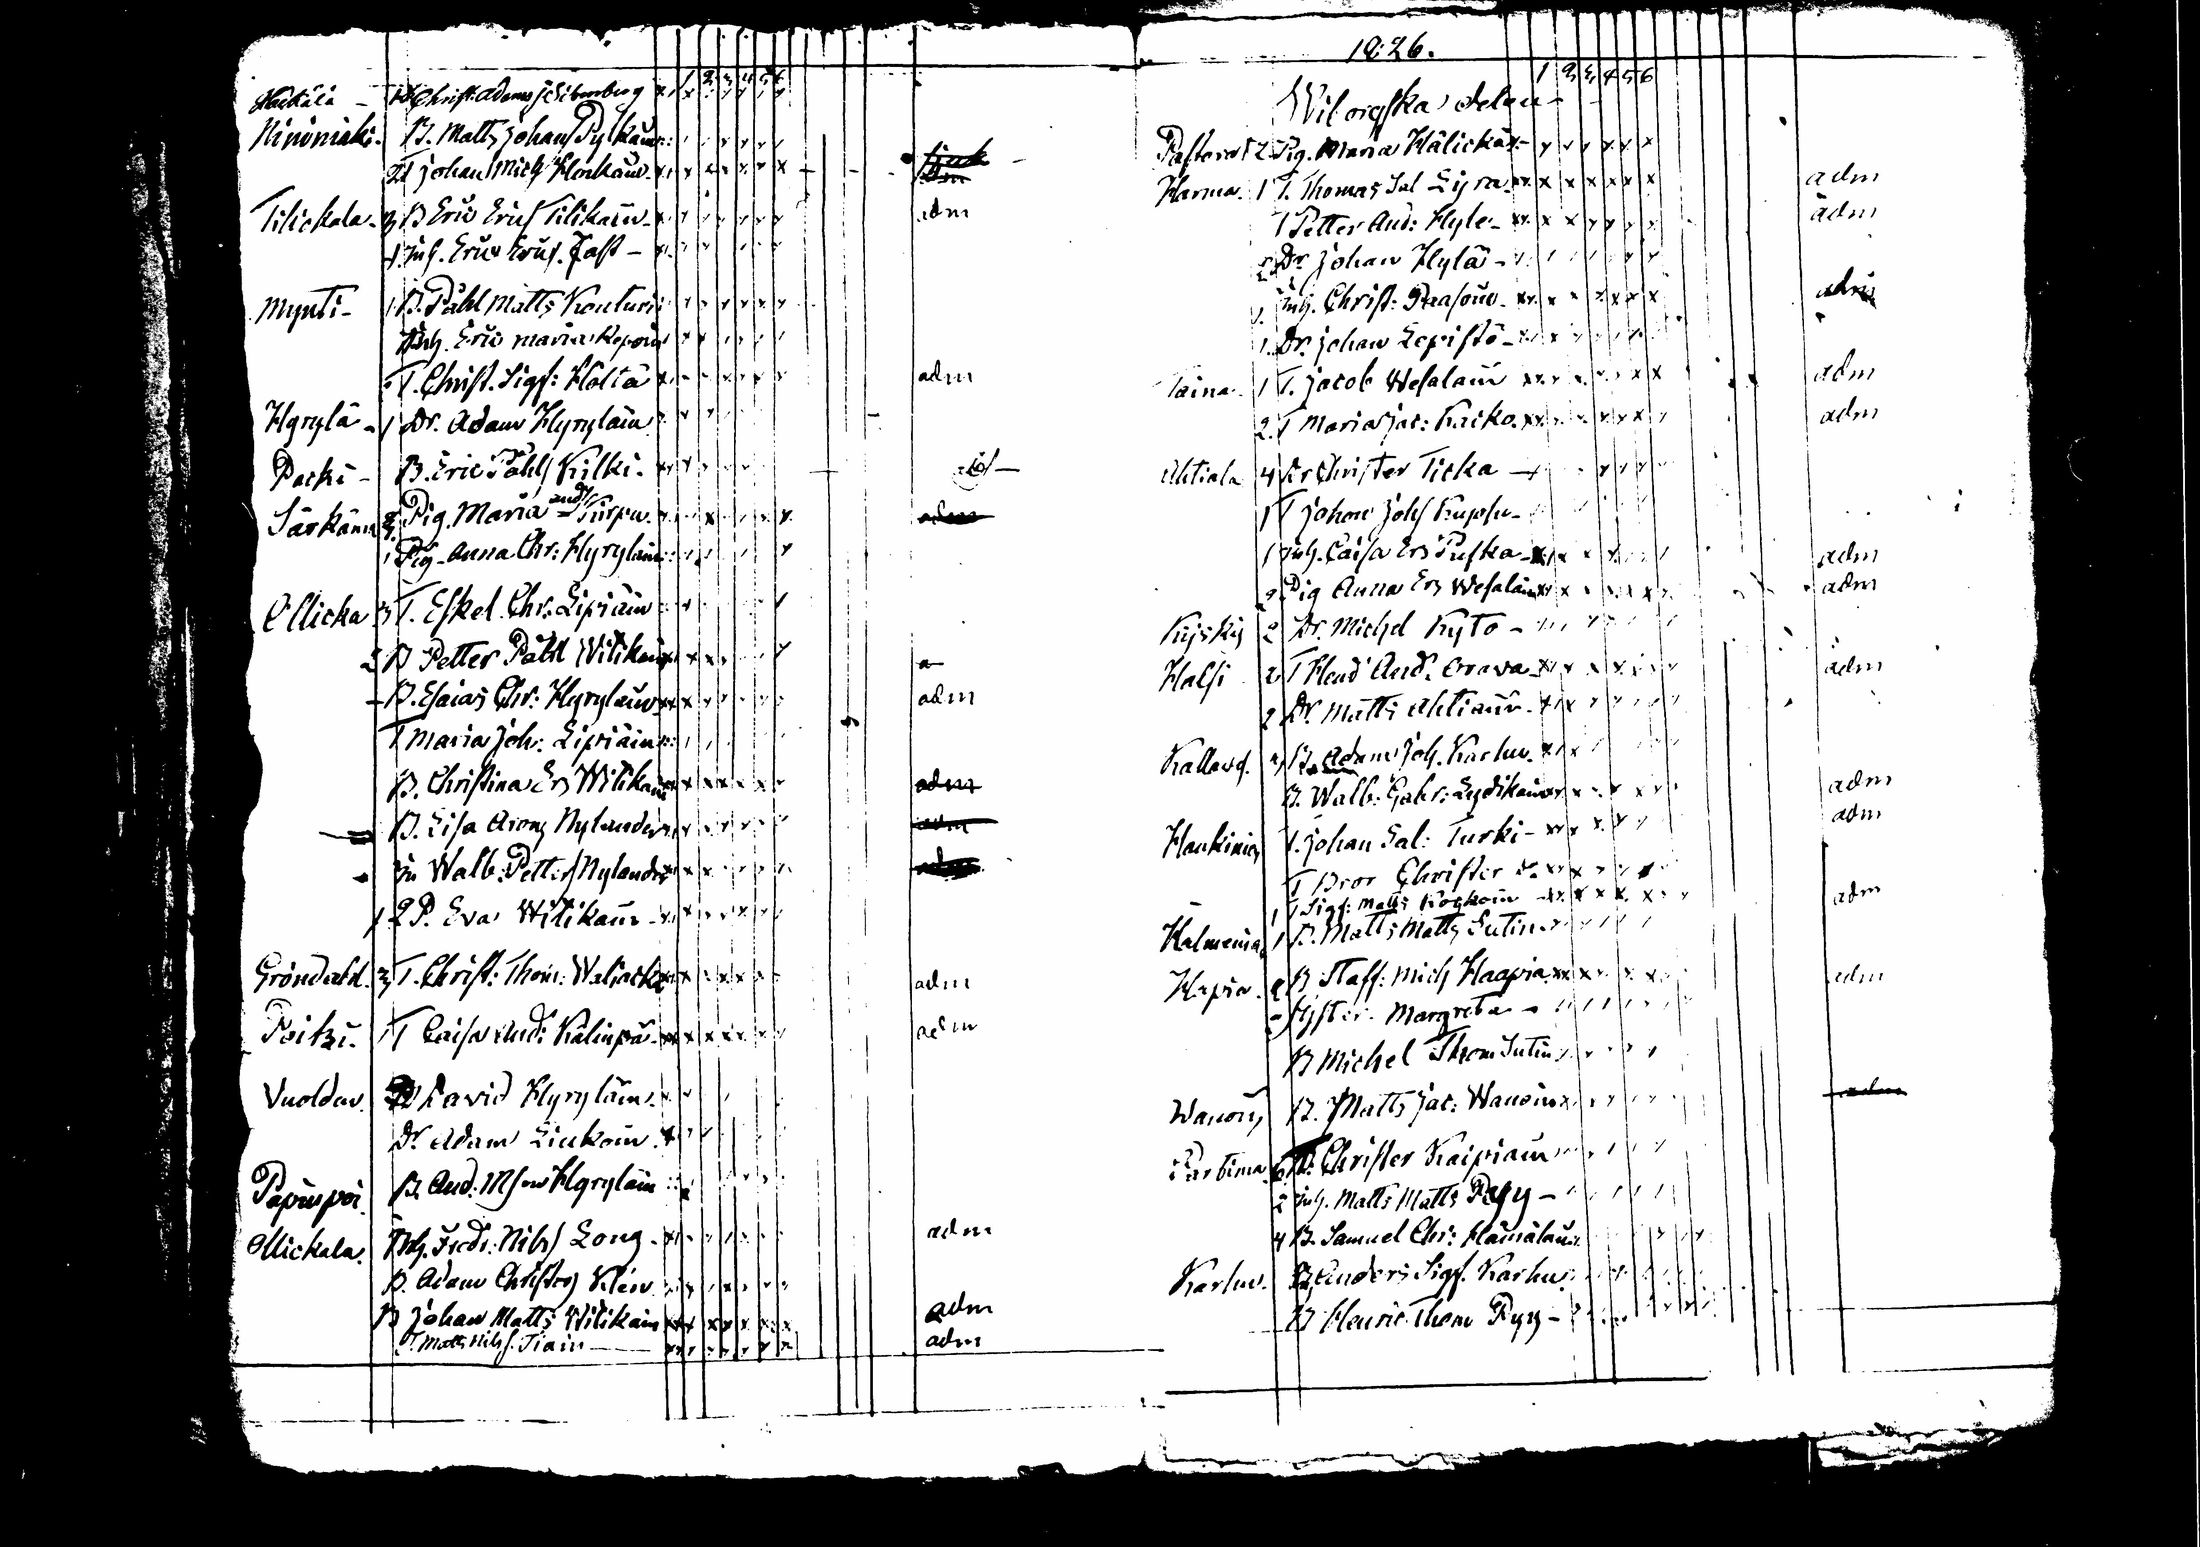 1 2 3 4 5 6
Christ: Adams
Niinimäki. B. Matts Johans Pylkäin
2 T Johan Mich Honkain
Tilickala. 3 B Eric Erics Tilikain adm
1 Inh. Eric Erics. Fast
Mynti - 1 B. Påhl Matts Konturi
Inh. Eric Maria Repoin
T. Christ. Sigf: Höltä adm
Hyrylä - 1 Dr. Adam Hyryläin
Packi - B. Eric Påhls Kilki.
Särkäma 2 Pig. Maria And Turpu. adm
1 Pig. Anna Chr: Hyryläin
Ollicka 3 T. Eskel Chr: Lipiäin
2 B Petter Påhl Wilikain a
B. Esaias Chr: Hyryläin adm
T Maria Joh: Lipiäin
B. Christina Ers Wilikain adm
B. Lisa Arons Nylander adm
In Walb: Petters Nylander adm
1 2 P. Eva Wilikain
Gröndahl. 3 T. Christ: Thom: Waljacka adm
Poitzi. 1 T Caisa And: Kälinpä adm
Vuolda. David Hyryläin.
Dr. Adam Liukoin
B. And: Hyryläin
Mickala. Inh. Fredr: Nils Long adm
B. Adam Christers Klein
B Johan Matts Wilikain adm
T. Matts Nils Tiain adm
1826.
1 2 3 4 5 6
Wiborgska delen
Pastors 2 Pig. Maria Hälickä
Harma. 1 T. Thomas Sal Lyra adm
1 Petter And: Hyle adm
2 Dr Johan Hylä
1 Inh. Christ: Paasoin adm
1 Dr. Johan Lepistö
Taina. 1 T. Jacob Wesalain adm
2. T Maria Jac: Kaiko adm
Ahtiala 4 Dr Christer Ticka
1 T Johan Johs
1 Inh. Caisa Ers Puska adm
2 Pig Anna Ers Wesalain adm
2 Dr. Michel Kytö
Halsi 2 T Hend And: Orava adm
2 Dr. Matts Ahtiain
Kallavs. B. Adam Joh. Karhu
B. Walb: Gabr: Lydikain adm
T. Johan Sal: Turki adm
T Bror Christer do
1 T Sigf: Matts adm
Halmeina. 1 B. Matts Matts Sutin
Hapia. 2 B Staff: Mich Haapia adm
Syster Margreta
B Michel Thom Sutin
B. Matts Jac: Wanoin adm
Partima Christer Kaipiain
2 Inh. Matts Matts Pyy
4 B. Samuel Chr: Hämäläin
Karhu. B Anders Sigf. Karhu
B Henric Thom Pyy